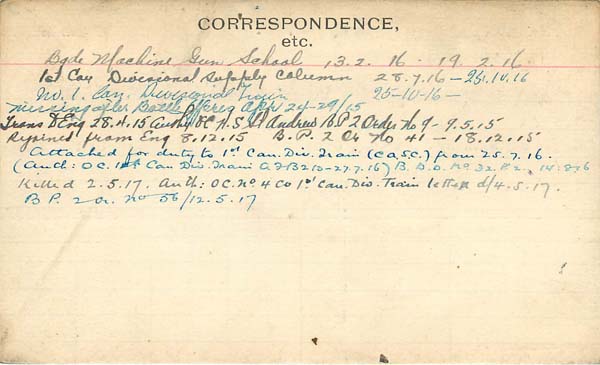 CORRESPONDENCE,
etc.
Bgde Machine Gun School 13.2.16 - 19.2.16
1st Can Divisional Supply Column 28.7.16 - 25.10.16
No. 1. Can. Divisional Train 25-10-16 -
Missing after Battle Ypres Apr 24-29/15
Trans to Eng 28.4.15 Auth OC H.S. St Andrew B.P. 2 Order No 9 - 9.5.15
Rejoined from Eng 8.12.15 B.P. 2 Or No 41 - 18.12.15
Attached for duty to 1st Can. Div. Train (C.A.S.C.) from 25.7.16.
(Auth: O.C. 1st Can Div. Train A.F.B213-27.7.16) B.D.O. No. 32. P. 2. 14.8.16
Killed 2.5.17. Auth: O.C. No 4 Co 1st Can. Div. Train letter d/4.5.17.
B P. 2 or. No 56/12.5.17